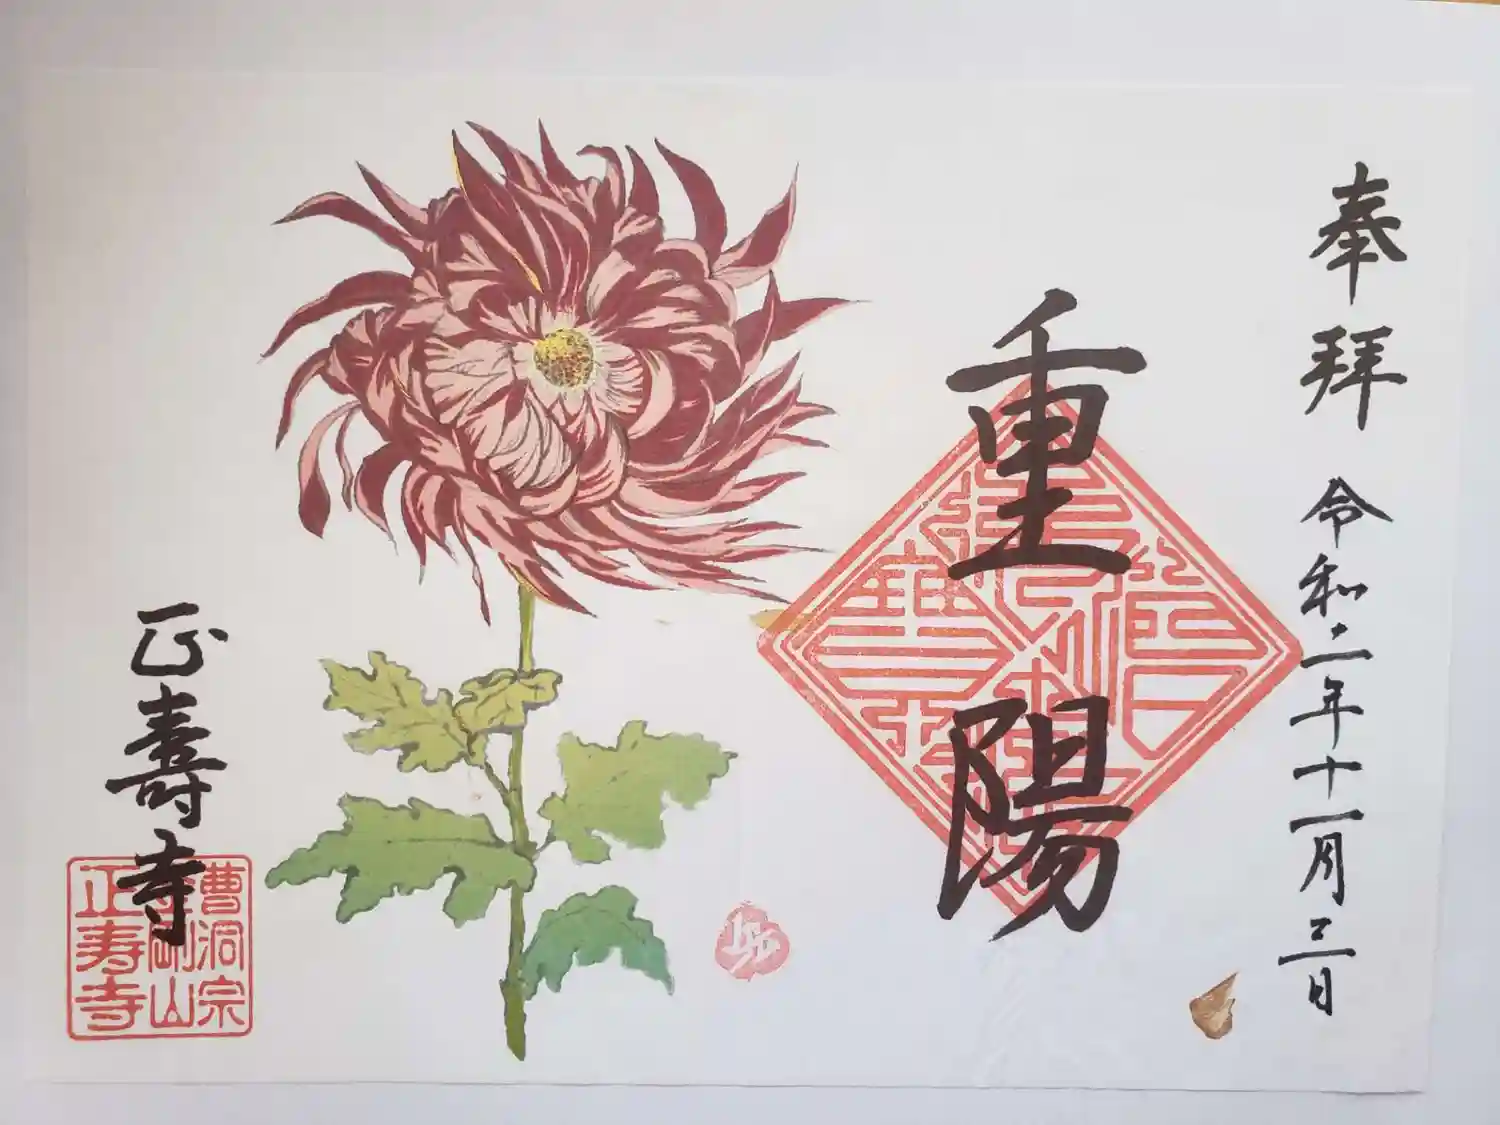 奉拜
令和二年十一月三日
重陽
正壽寺
曹洞宗
剛山
正寿寺